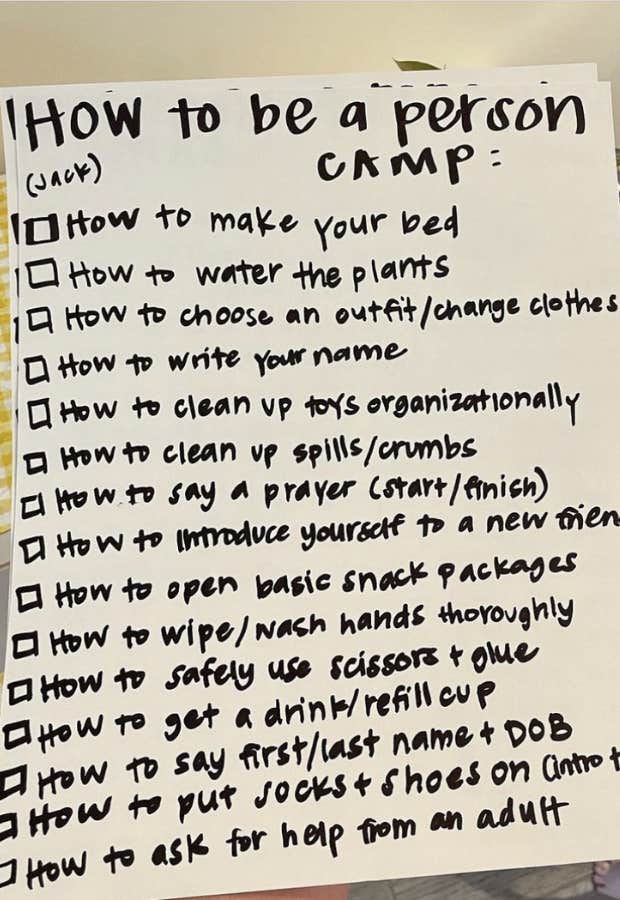 How to be a person
(Jack) CAMP:
How to make your bed
How to water the plants
How to choose an outfit/change clothes
How to write your name
How to clean up toys organizationally
How to clean up spills/crumbs
How to say a prayer (start/finish)
How to introduce yourself to a new
How to open basic snack packages
How to wipe/wash hands thoroughly
How to safely use scissors + glue
How to get a drink/refill cup
How to say first/last name + DOB
How to put socks + shoes on (intro
How to ask for help from an adult